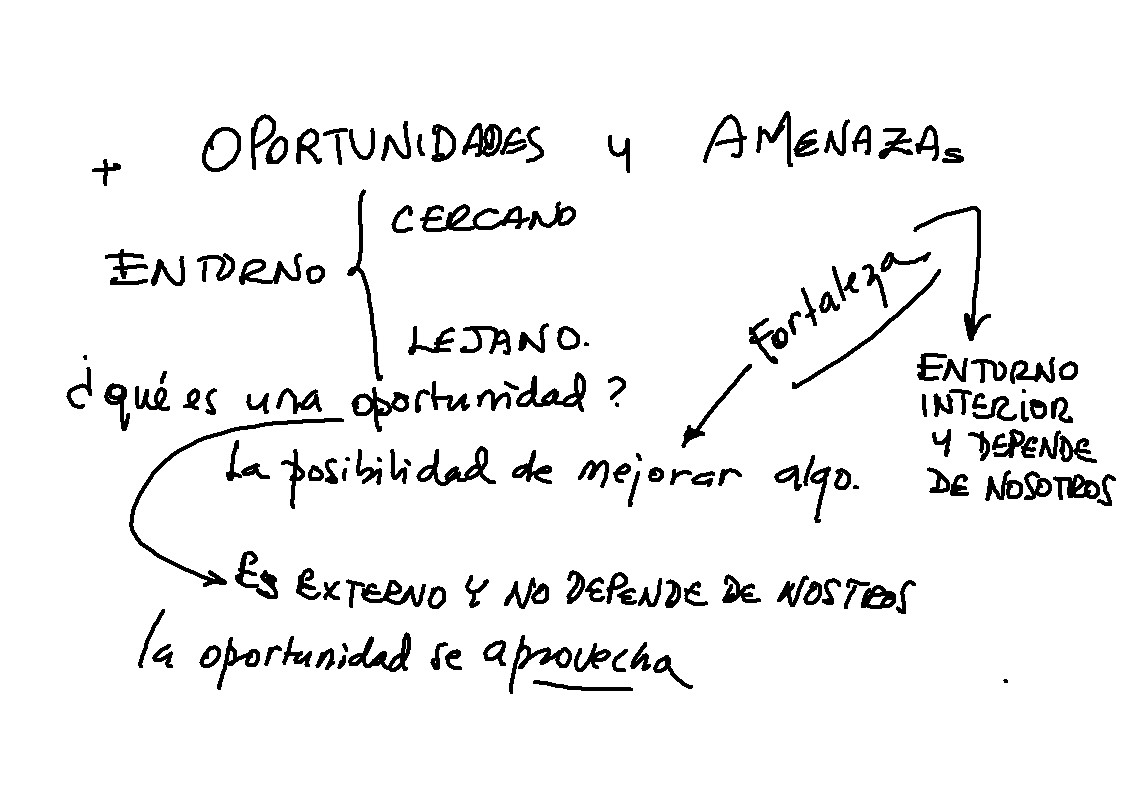 + OPORTUNIDADES y AMENAZAs
CERCANO
ENTORNO
LEJANO.
Fortaleza
ENTORNO
INTERIOR
Y DEPENDE
DE NOSOTROS
¿qué es una oportunidad?
La posibilidad de mejorar algo.
Es EXTERNO Y NO DEPENDE DE NOSTROS
la oportunidad se aprovecha